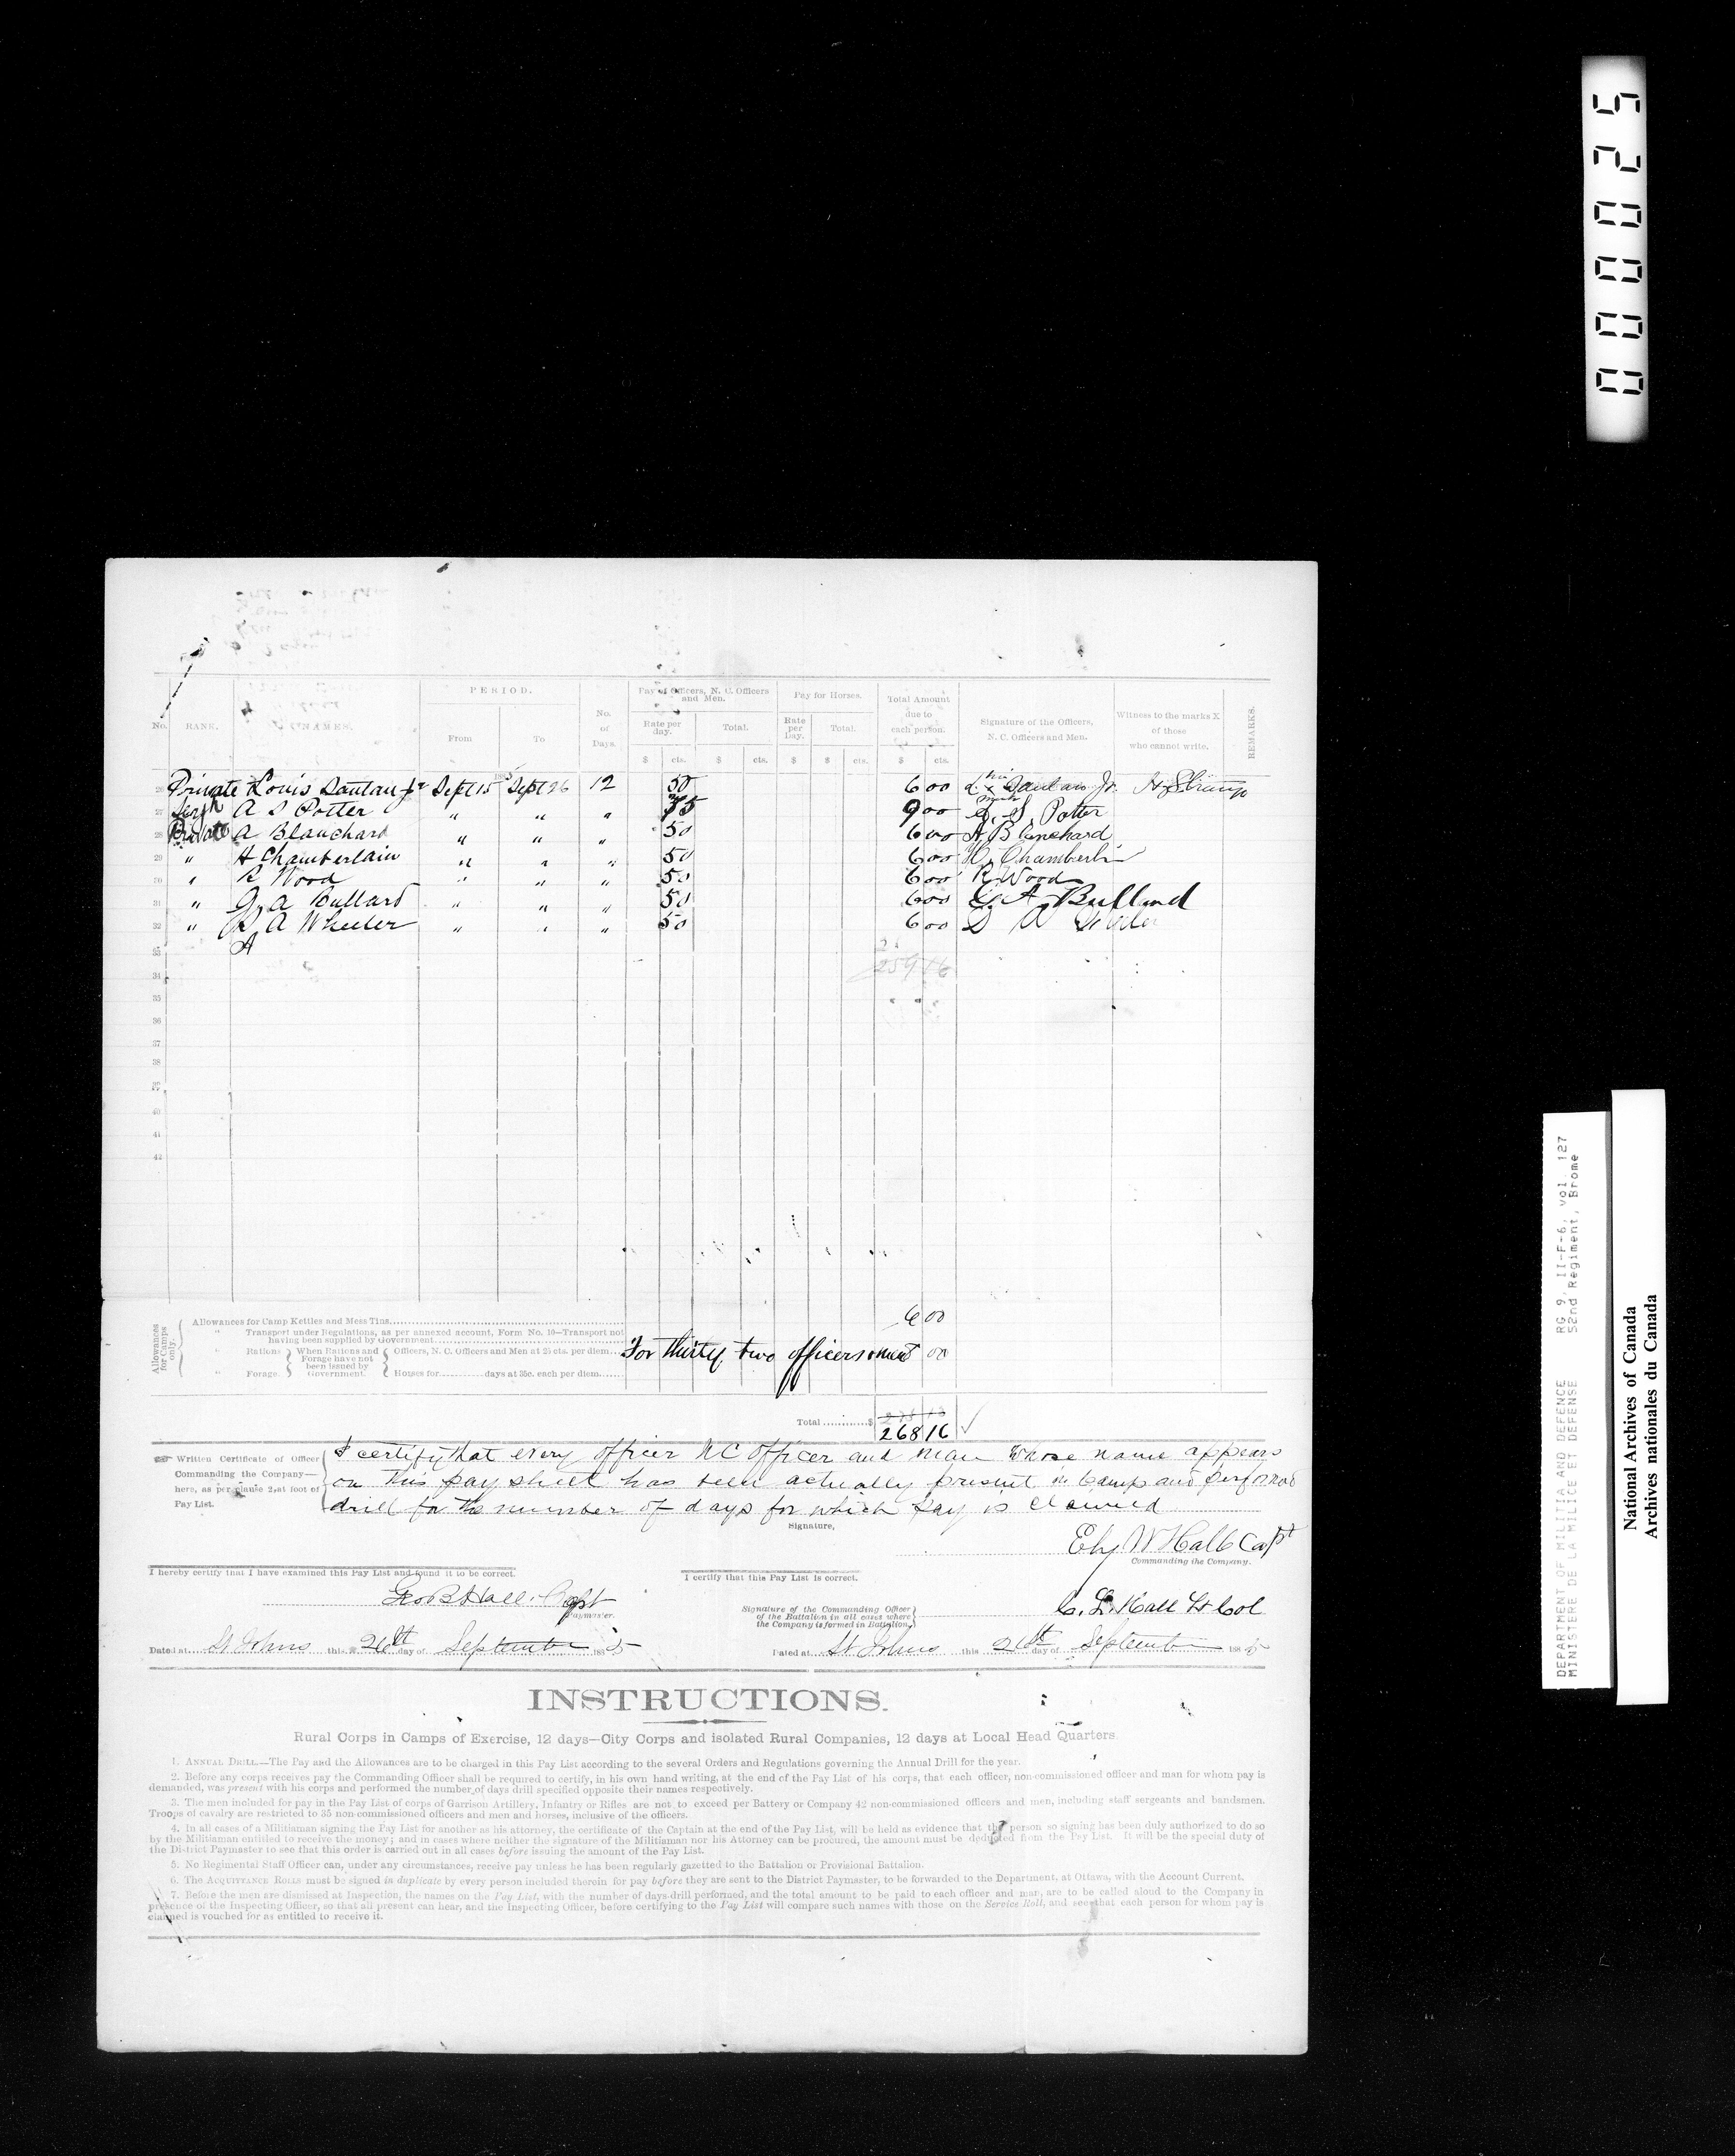 00025
PERIOD.
Pay of Officers, N. C. Officers and Men.
Pay for Horses.
Total Amount due to each person.
No.
RANK.
NAMES.
From
To
No. of Days.
Rate per day.
Total.
Rate per Day.
Total.
Signature of the Officers, N. C. Officers and Men.
Witness to the marks X of those who cannot write.
REMARKS.
$ cts. $ cts. $ $ cts. $ cts.
1885
26 Private Louis Santau Jr Sept 15 Sept 26 12 50 6 00 L x Santau Jr. his mark
27 Sergt A S Potter " " " 75 9 00 A. S. Potter
28 Private A Blanchard " " " 50 6 00 A Blanchard
29 " H Chamberlain " " " 50 6 00 H. Chamberlin
30 " R Wood " " " 50 6 00 R Wood
31 " G A Bullard " " " 50 6 00 G. A. Bullard
32 " A Wheeler " " " 50 6 00
33
34 259 16
35
36
37
38
39
40
41
42
Allowances for Camps only.
Allowances for Camp Kettles and Mess Tins 6 00
" Transport under Regulations, as per annexed account, Form No. 10—Transport not having been supplied by Government
" Rations } When Rations and Forage have not been issued by Government. { Officers, N. C. Officers and Men at 25 cts. per diem For thirty two officers & men 00
" Forage. Horses for days at 35c. each per diem
Total $ 268 16
Written Certificate of Officer Commanding the Company—here, as per clause 2, at foot of Pay List.
I certify that every officer NC officer and man whose name appears
on this pay sheet has been actually present in Camp and performed
drill for the number of days for which pay is claimed
Signature,
W Hall Capt
Commanding the Company.
I hereby certify that I have examined this Pay List and found it to be correct.
Geo B Hall. Capt
Paymaster.
I certify that this Pay List is correct.
Signature of the Commanding Officer of the Battalion in all cases where the Company is formed in Battalion,
C. L. Hall Lt Col
Dated at St Johns this 26th day of September 1885
Dated at St Johns this 26th day of September 1885
INSTRUCTIONS.
Rural Corps in Camps of Exercise, 12 days—City Corps and isolated Rural Companies, 12 days at Local Head Quarters.
1. ANNUAL DRILL.—The Pay and the Allowances are to be charged in this Pay List according to the several Orders and Regulations governing the Annual Drill for the year.
2. Before any corps receives pay the Commanding Officer shall be requred to certify, in his own hand writing, at the end of the Pay List of his corps, that each officer, non-commissioned officer and man for whom pay is
demanded, was present with his corps and performed the number of days drill specified opposite their names respectively.
3. The men included for pay in the Pay List of corps of Garrison Artillery, Infantry or Rifles are not to exceed per Battery or Company 42 non-commissioned officers and men, including staff sergeants and bandsmen.
Troops of cavalry are restricted to 35 non-commissioned officers and men and horses, inclusive of the officers.
4. In all cases of a Militiaman signing the Pay List for another as his attorney, the certificate of the Captain at the end of the Pay List, will be held as evidence that the person so signing has been duly authorized to do so
by the Militiaman entitled to receive the money; and in cases where neither the signature of the Militiaman nor his Attorney can be procured, the amount must be deducted from the Pay List. It will be the special duty of
the District Paymaster to see that this order is carried out in all cases before issuing the amount of the Pay List.
5. No Regimental Staff Officer can, under any circumstances, receive pay unless he has been regularly gazetted to the Battalion or Provisional Battalion.
6. The ACQUITTANCE ROLLS must be signed in duplicate by every person included therein for pay before they are sent to the District Paymaster, to be forwarded to the Department, at Ottawa, with the Account Current.
7. Before the men are dismissed at Inspection, the names on the Pay List, with the number of days drill performed, and the total amount to be paid to each officer and man, are to be called aloud to the Company in
presence of the Inspecting Officer, so that all present can hear, and the Inspecting Officer, before certifying to the Pay List will compare such names with those on the Service Roll, and see that each person for whom pay is
claimed is vouched for as entitled to receive it.
DEPARTMENT OF MILITIA AND DEFENCE RG 9, II-F-6, vol 127
MINISTERE DE LA MILICE ET DEFENSE 52nd Regiment, Brome
National Archives of Canada
Archives nationales du Canada